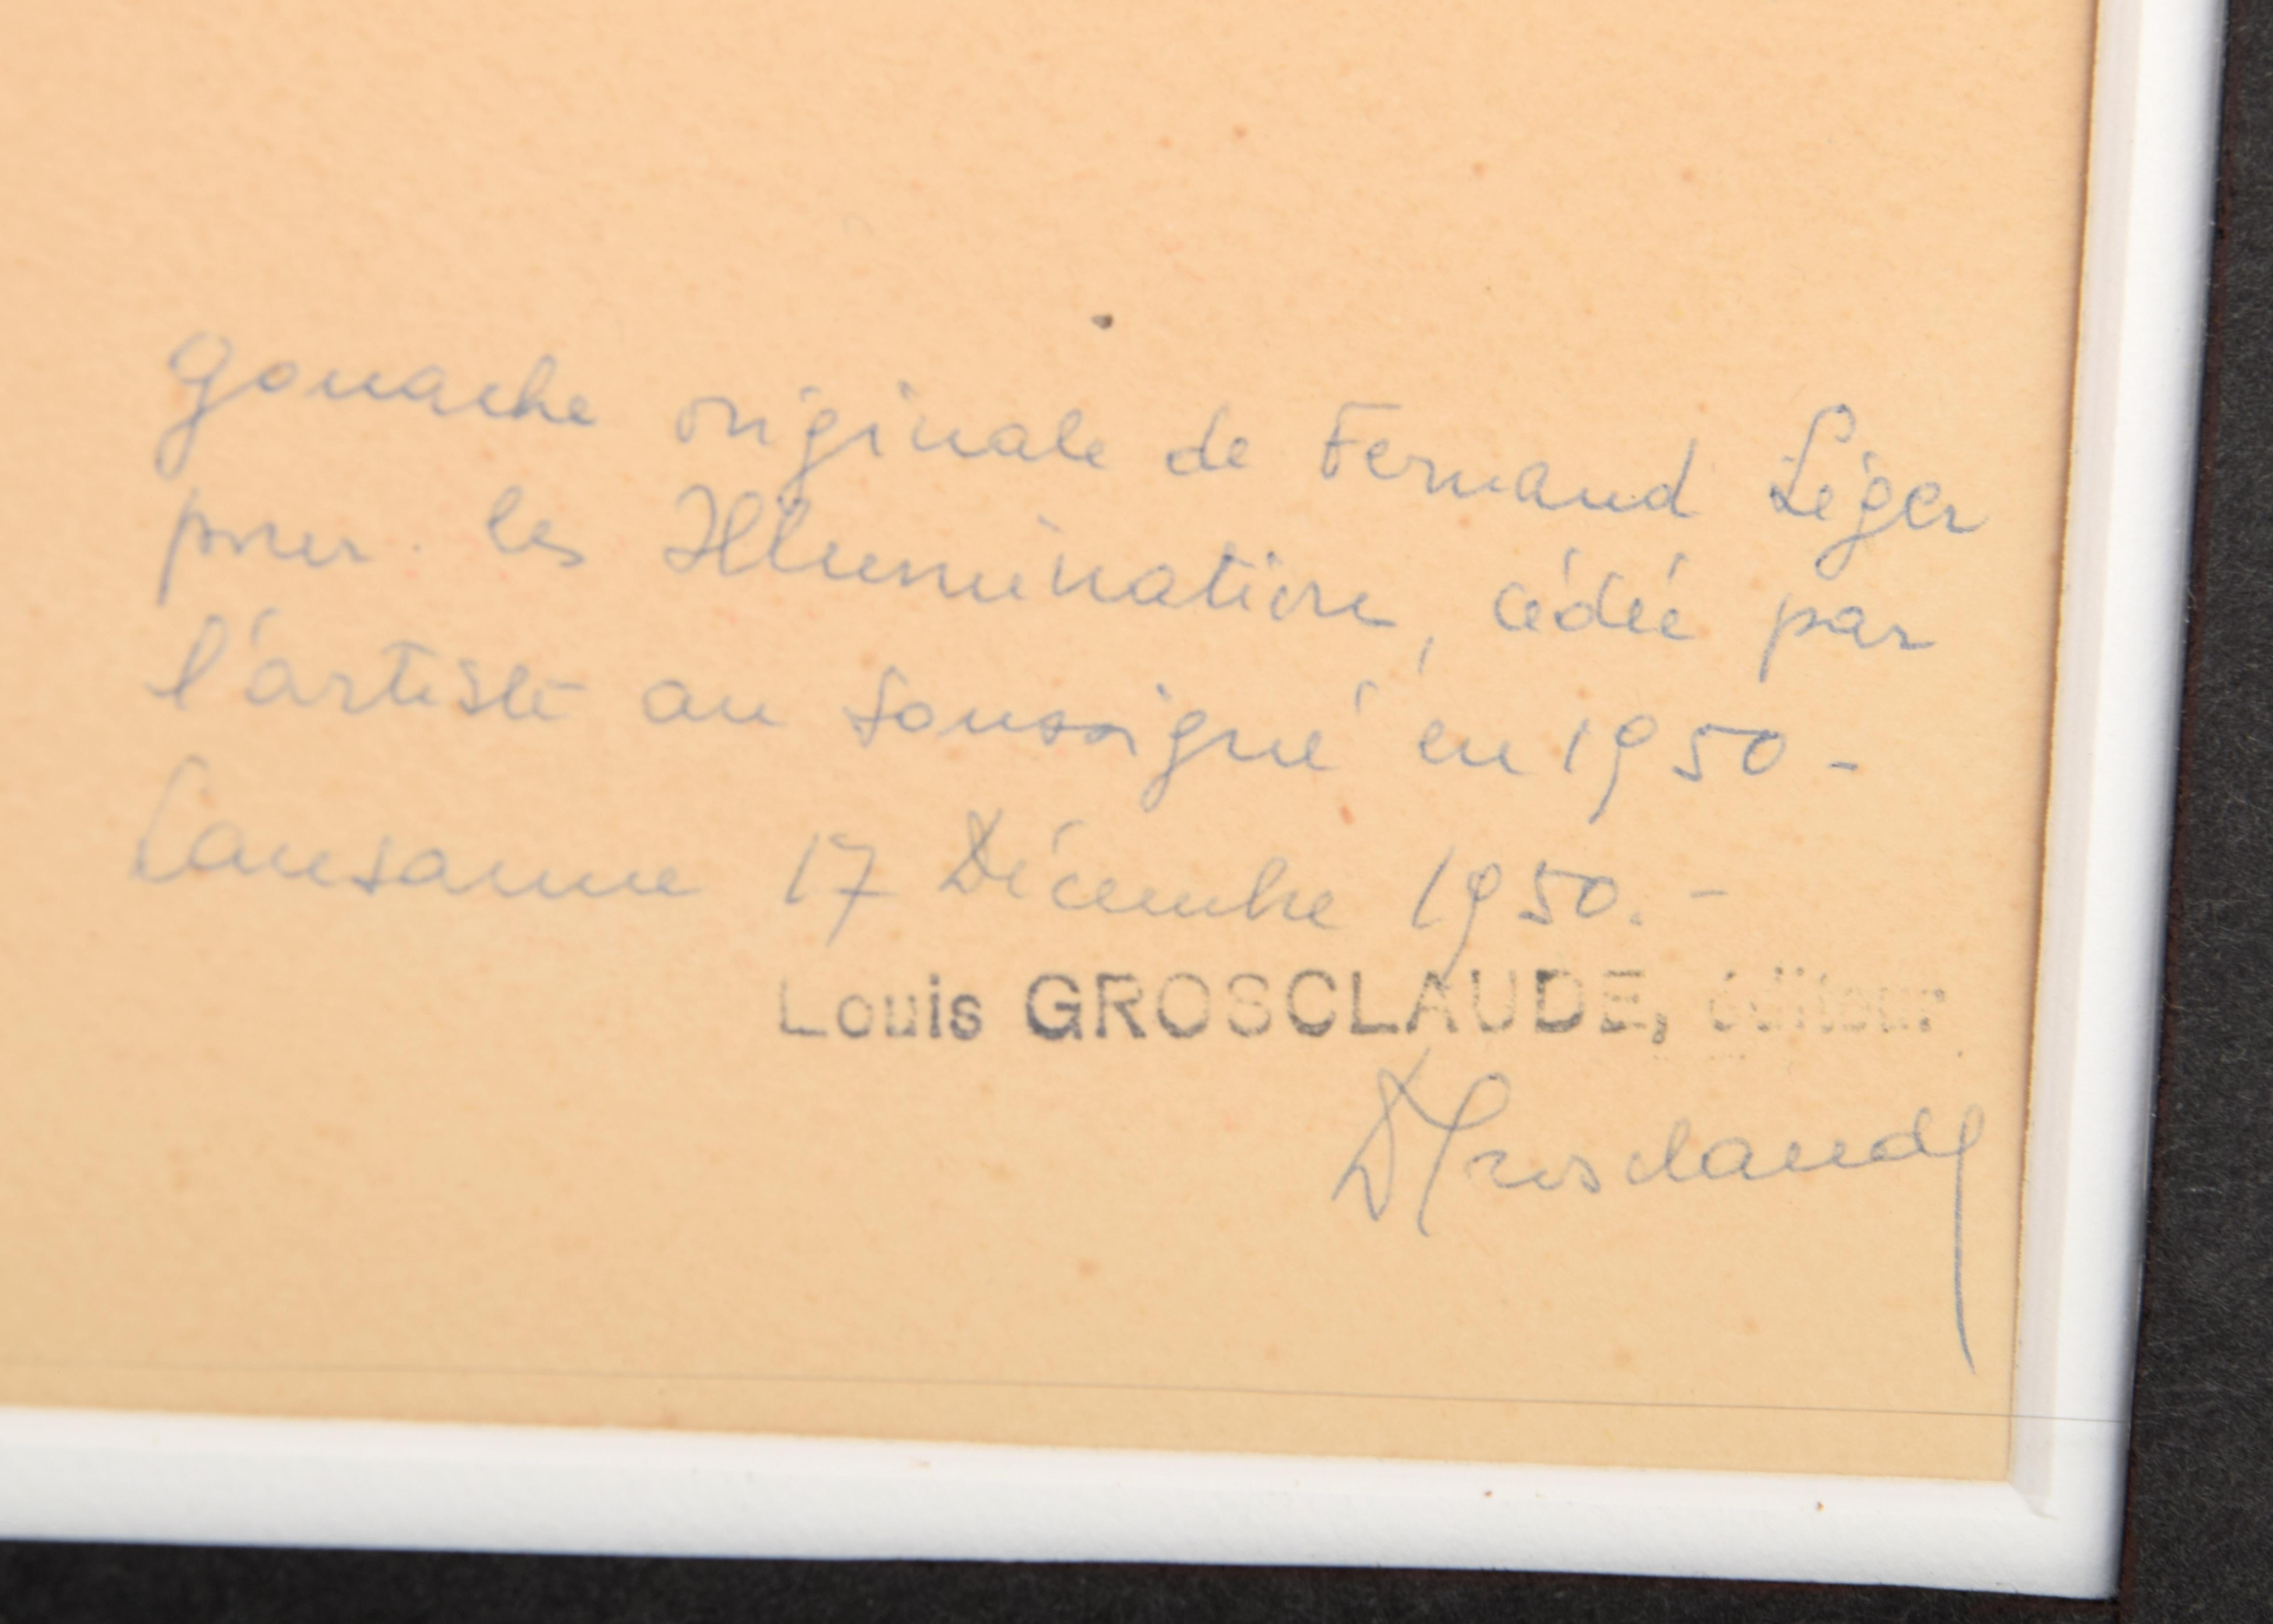 gouache originale de Fernand Léger
pour les Illumination, cédée par
l'artiste au soussigné en 1950 -
Lausanne 17 Décembre 1950. -
Louis GROSCLAUDE, éditeur
Grosclaude